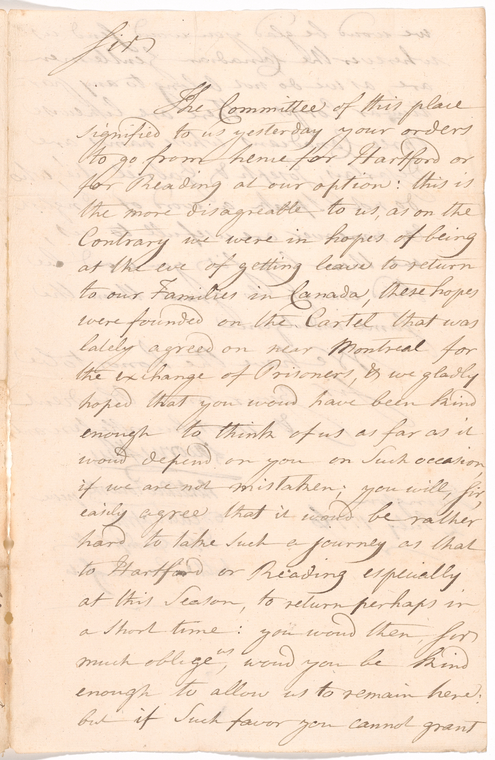 Sir
The Committee of this place
Signified to us yesterday your orders
to go from heme for Hartford or
for Reading at our option: this is
the more disagreeable to us, as on the
Contrary we were in hopes of being
at the eve of getting leave to return
to our Families in Canada, these hopes
were founded on the Cartel that was
lately agreed on near Montreal for
the exchange of Prisoners, & we gladly
hoped that you woud have been kind
enough to think of us as far as it
woud depend on you on Such occasion
if we are not mistaken; you will, Sir,
easily agree that it woud be rather
hard to take Such a journey as that
to Hartford or Reading especially
at this Season, to return perhaps in
a Short time: you woud then, Sir,
much oblige us, woud you be kind
enough to allow us to remain here:
but if Such favor you cannot grant